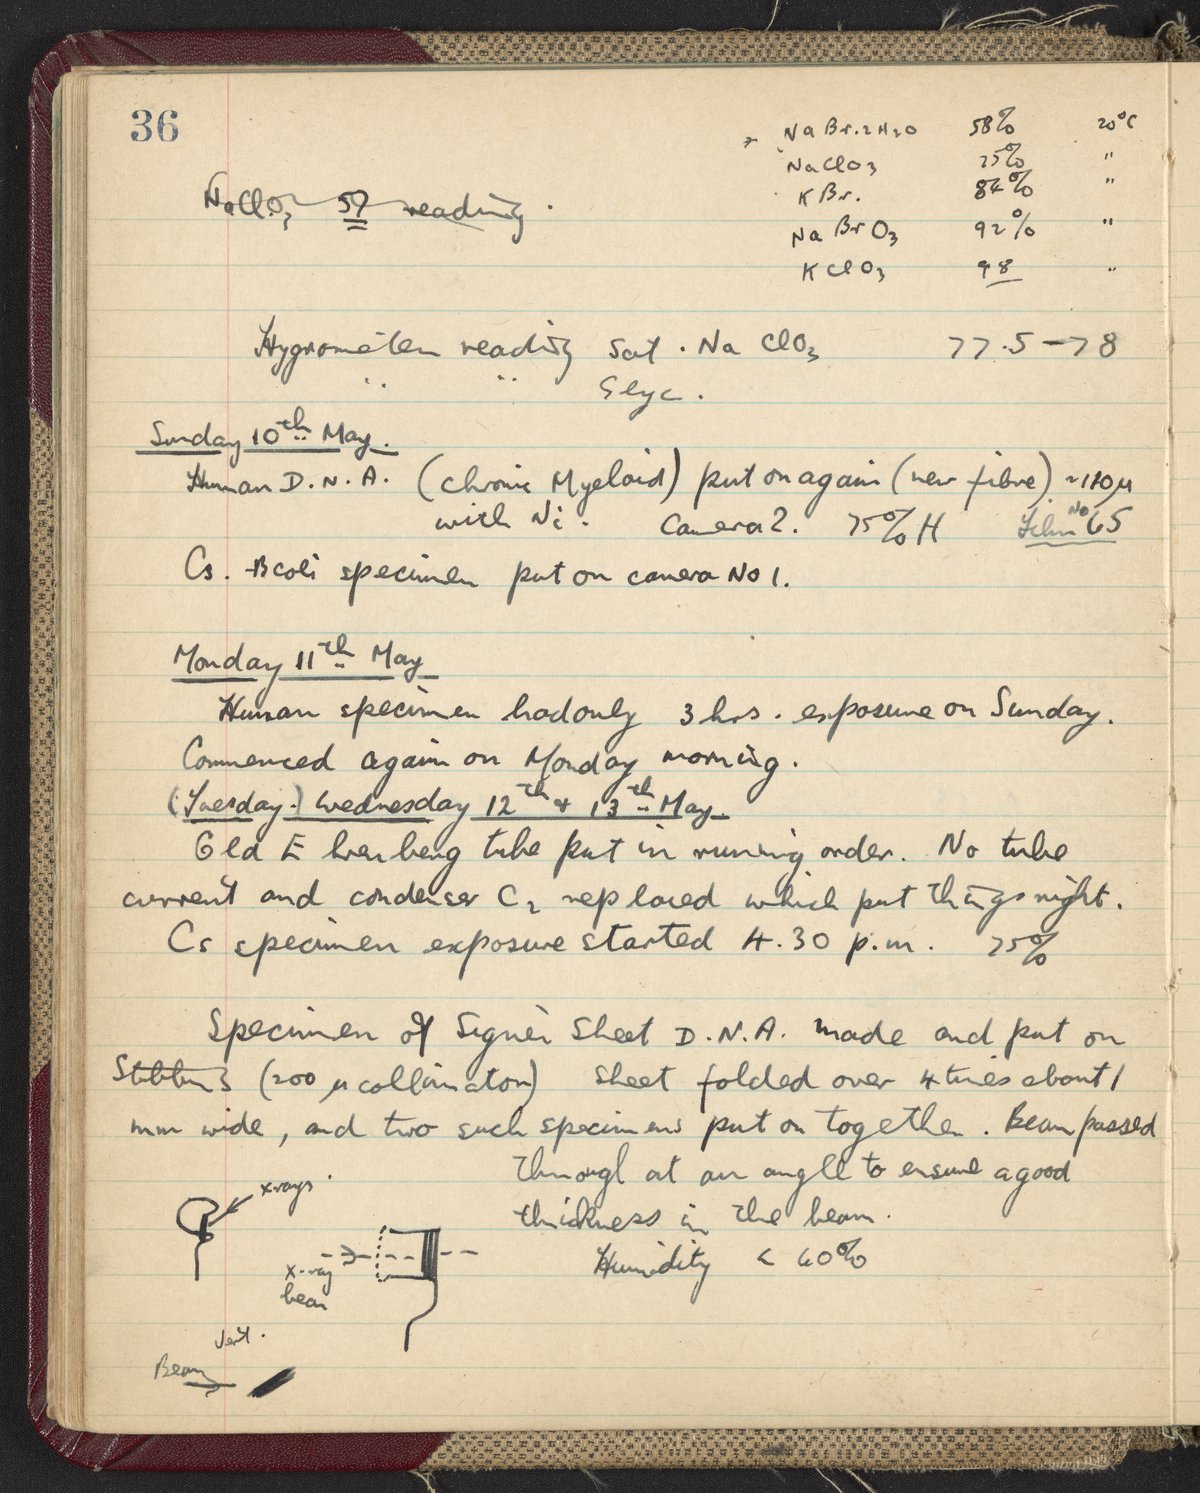 36
NaBr.2H2O 58% 20°C
NaClO3 75% "
KBr. 84% "
NaBrO3 92% "
KClO3 98 "
NaClO3 59 reading.
Hygrometer reading Sat. NaClO3 77.5–78
" " Glyc.
Sunday 10th May.
Human D.N.A. (Chronic Myeloid) put on again (new fibre) ~110μ
with Ni. Camera 2. 75% H Film No 65
Cs. B coli specimen put on camera No 1.
Monday 11th May
Human specimen had only 3 hrs. exposure on Sunday.
Commenced again on Monday morning.
(Tuesday.) Wednesday 12th & 13th May.
Old Ehrenberg tube put in running order. No tube
current and condenser C2 replaced which put things right.
Cs specimen exposure started 4.30 p.m. 75%
Specimen of Signer Sheet D.N.A. made and put on
(200 μ collimator) Sheet folded over 4 times about 1
mm wide, and two such specimens put on together. Beam passed
through at an angle to ensure a good
thickness in the beam.
Humidity < 60%
x rays.
x-ray
beam
Vert.
Beam